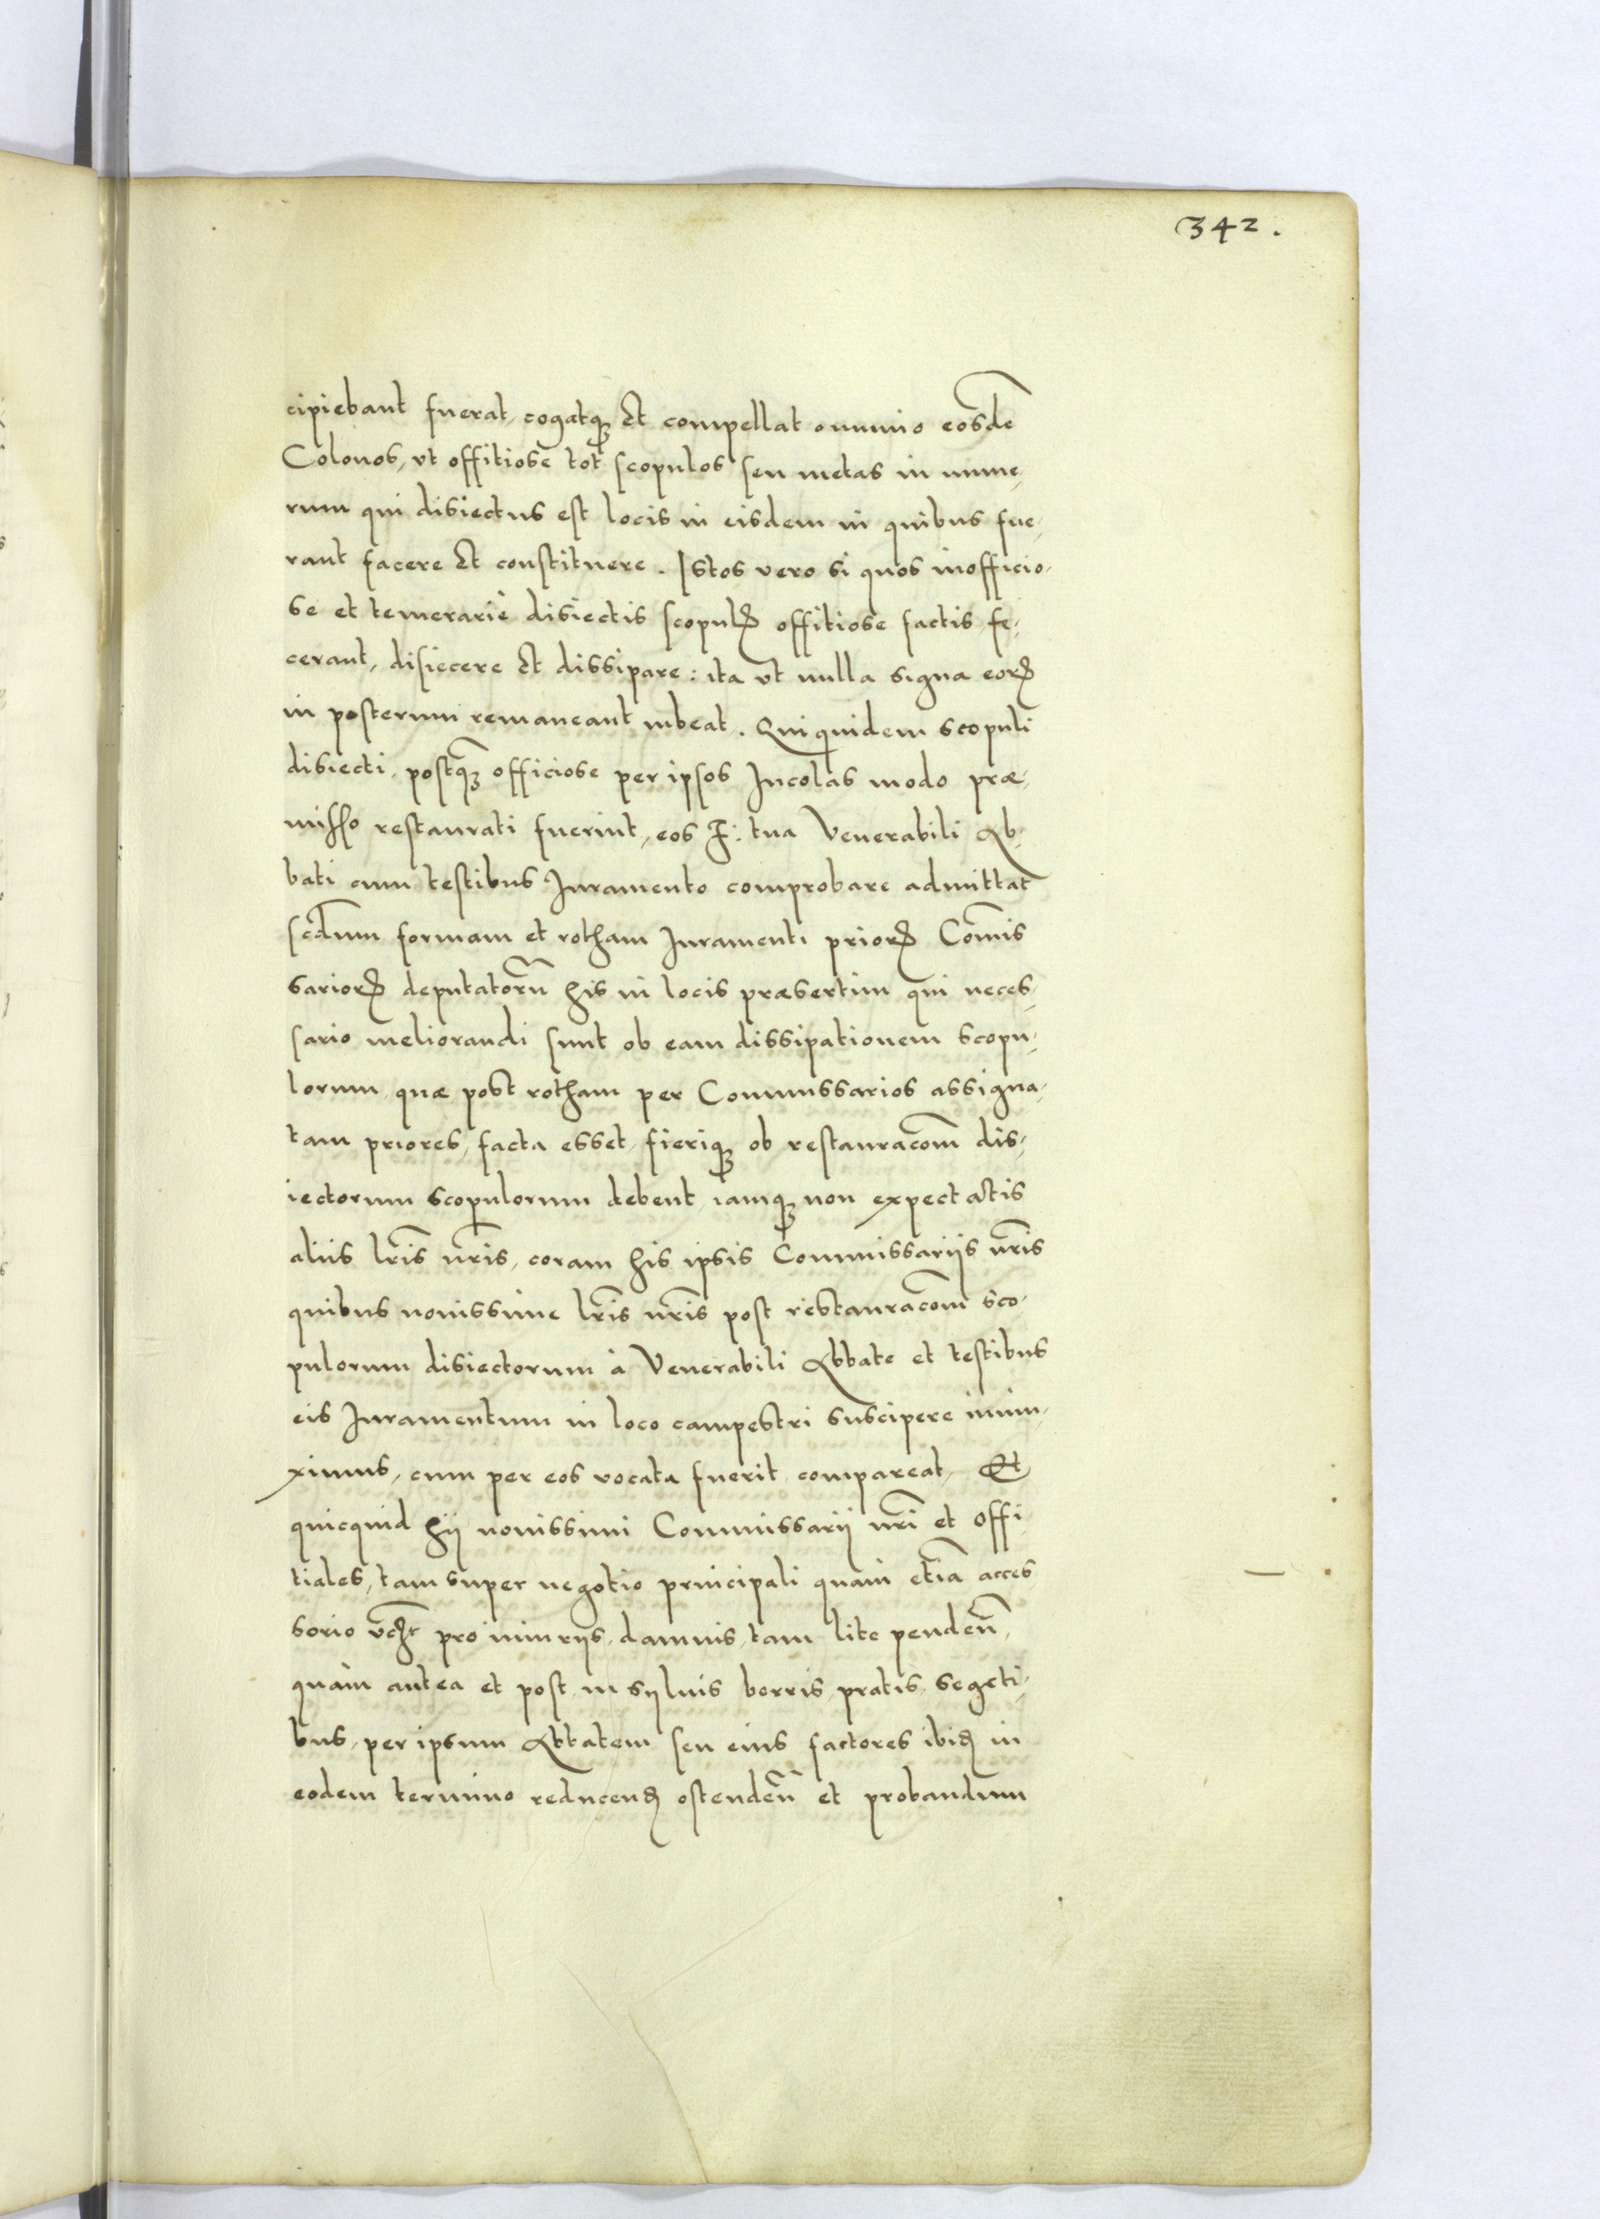 342.
cipiebant fuerat, cogatqꝫ Et compellat omnino eosdē
Colonos, vt offitiose tot scopulos seu metas in nume,
rum qui disiectus est locis in eisdem in quibus fue,
rant facere Et constituere. Istos vero si quos inofficio,
se et temerariè disiectis scopulꝝ offitiose factis fe,
cerant, disiecere Et dissipare: ita vt nulla signa eorꝝ
in posterum remaneant iubeat. Quiquidem scopuli
disiecti, postqꝫ officiose per ipsos Incolas modo præ,
misso restaurati fuerint, eos F: tua Venerabili Ab,
bati cum testibus Iuramento comprobare admittat
scdum formam et rotham Iuramenti priorꝝ Com̄is
sariorꝝ deputatorū his in locis præsertim qui neces,
sario meliorandi sunt ob eam dissipationem scopu,
lorum, quæ post rotham per Commissarios assigna,
tam priores, facta esset, fieriqꝫ ob restauracōm dis,
iectorum scopulorum debent, iamqꝫ non expectatis
aliis lr̄is nr̄is, coram his ipsis Commissariis nr̄is
quibus nouissime lr̄is nr̄is post restauracōm sco,
pulorum disiectorum à Venerabili Abbate et testibus
eis Iuramentum in loco campestri suscipere iniun,
ximus, cum per eos vocata fuerit, compareat, Et
quicquid hij nouissimi Commissarij nr̄i et Offi
tiales, tam super negotio principali quam etiā acces
sorio pro iniurijs, damnis, tam lite pendeñ,
quàm antea et post in syluis borris, pratis, segeti,
bus, per ipsum Abbatem seu eius factores ibiꝫ in
eodem termino reducenꝫ ostendeñ et probandum